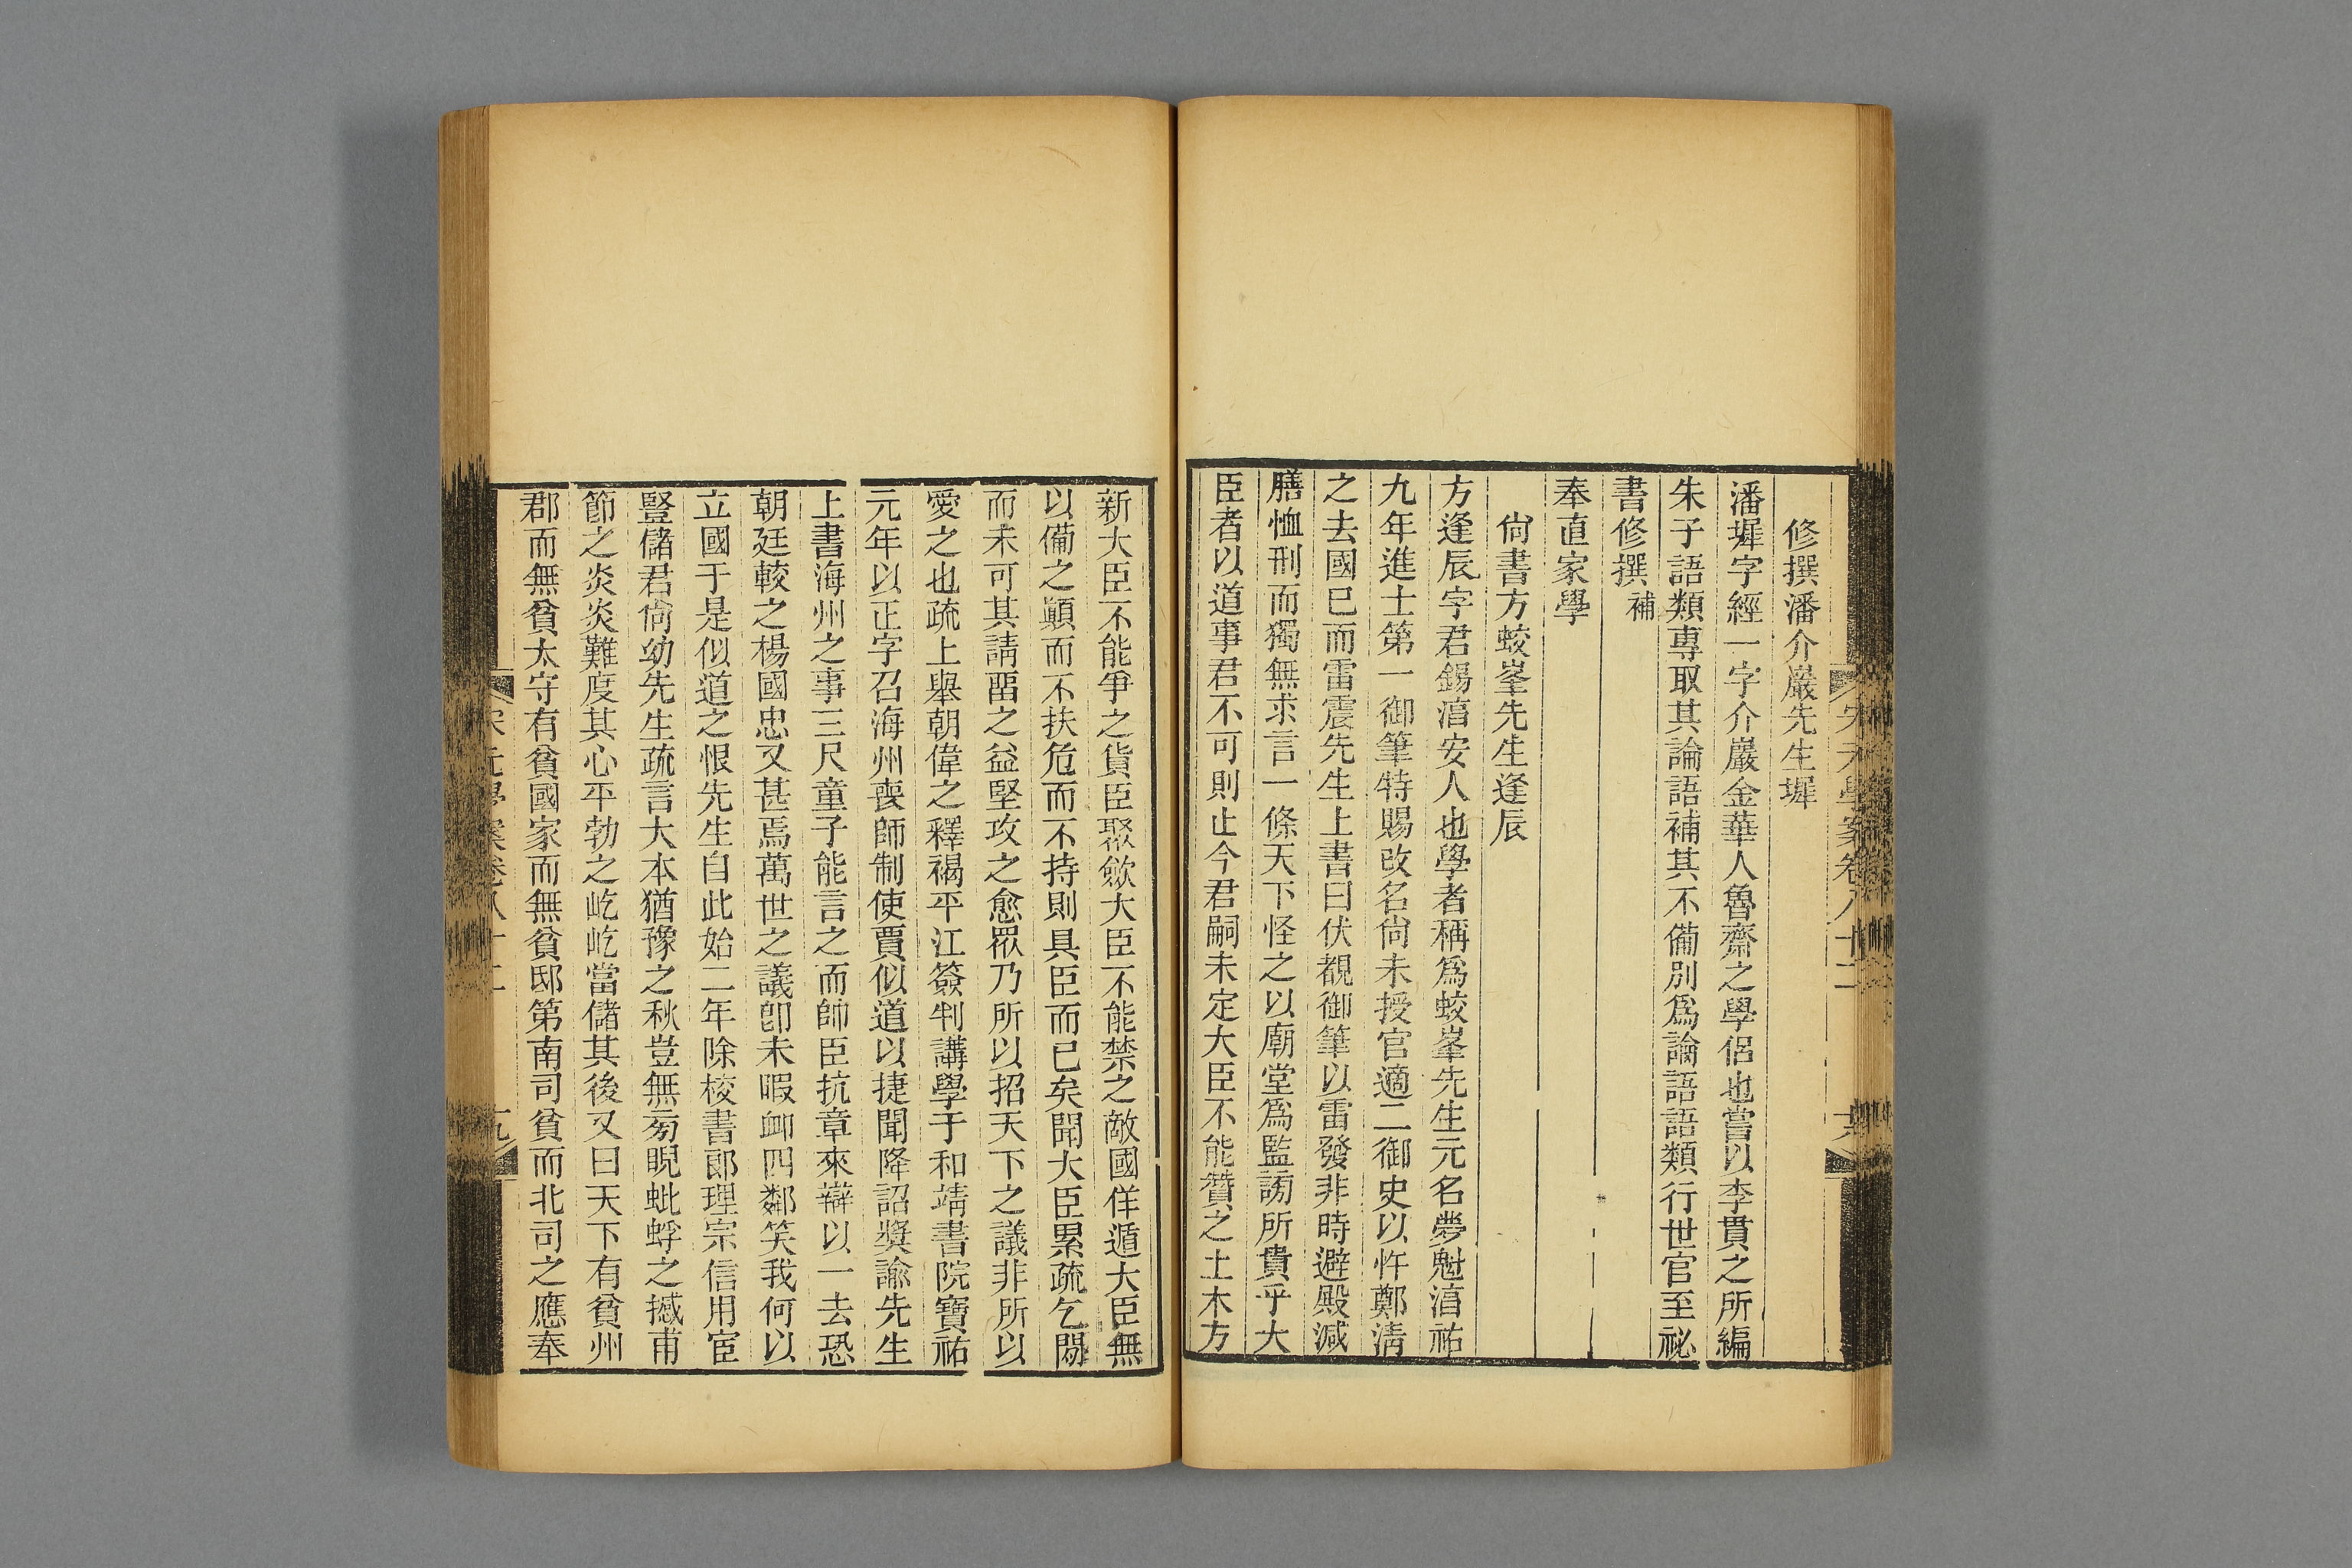 修撰潘介巖先生墀
潘墀字經一字介巖金華人魯齋之學侶也嘗以李貫之所編
朱子語類專取其論語補其不備別爲論語語類行世官至祕
書修撰補
奉直家學
尙書方蛟峯先生逢辰
方逢辰字君錫湻安人也學者稱爲蛟峯先生元名夢魁湻祐
九年進士第一御筆特賜改名尙未授官適二御史以忤鄭淸
之去國巳而雷震先生上書曰伏覩御筆以雷發非時避殿減
膳恤刑而獨無求言一條天下怪之以廟堂爲監謗所貴乎大
臣者以道事君不可則止今君嗣未定大臣不能贊之土木方
宋元學案卷八十二
新大臣不能爭之貨臣聚斂大臣不能禁之敵國佯遁大臣無
以備之顚而不扶危而不持則具臣而已矣聞大臣累疏乞閒
而未可其請畱之益堅攻之愈眾乃所以招天下之議非所以
愛之也疏上舉朝偉之釋褐平江簽判講學于和靖書院寶祐
元年以正字召海州喪師制使賈似道以捷聞降詔獎諭先生
上書海州之事三尺童子能言之而帥臣抗章來辯以一去恐
朝廷較之楊國忠又甚焉萬世之議卽未暇卹四鄰笑我何以
立國于是似道之恨先生自此始二年除校書郞理宗信用宦
豎儲君尙幼先生疏言大本猶豫之秋豈無旁睨蚍蜉之撼甫
節之炎炎難度其心平勃之屹屹當儲其後又曰天下有貧州
郡而無貧太守有貧國家而無貧邸第南司貧而北司之應奉
宋元學案卷八十二